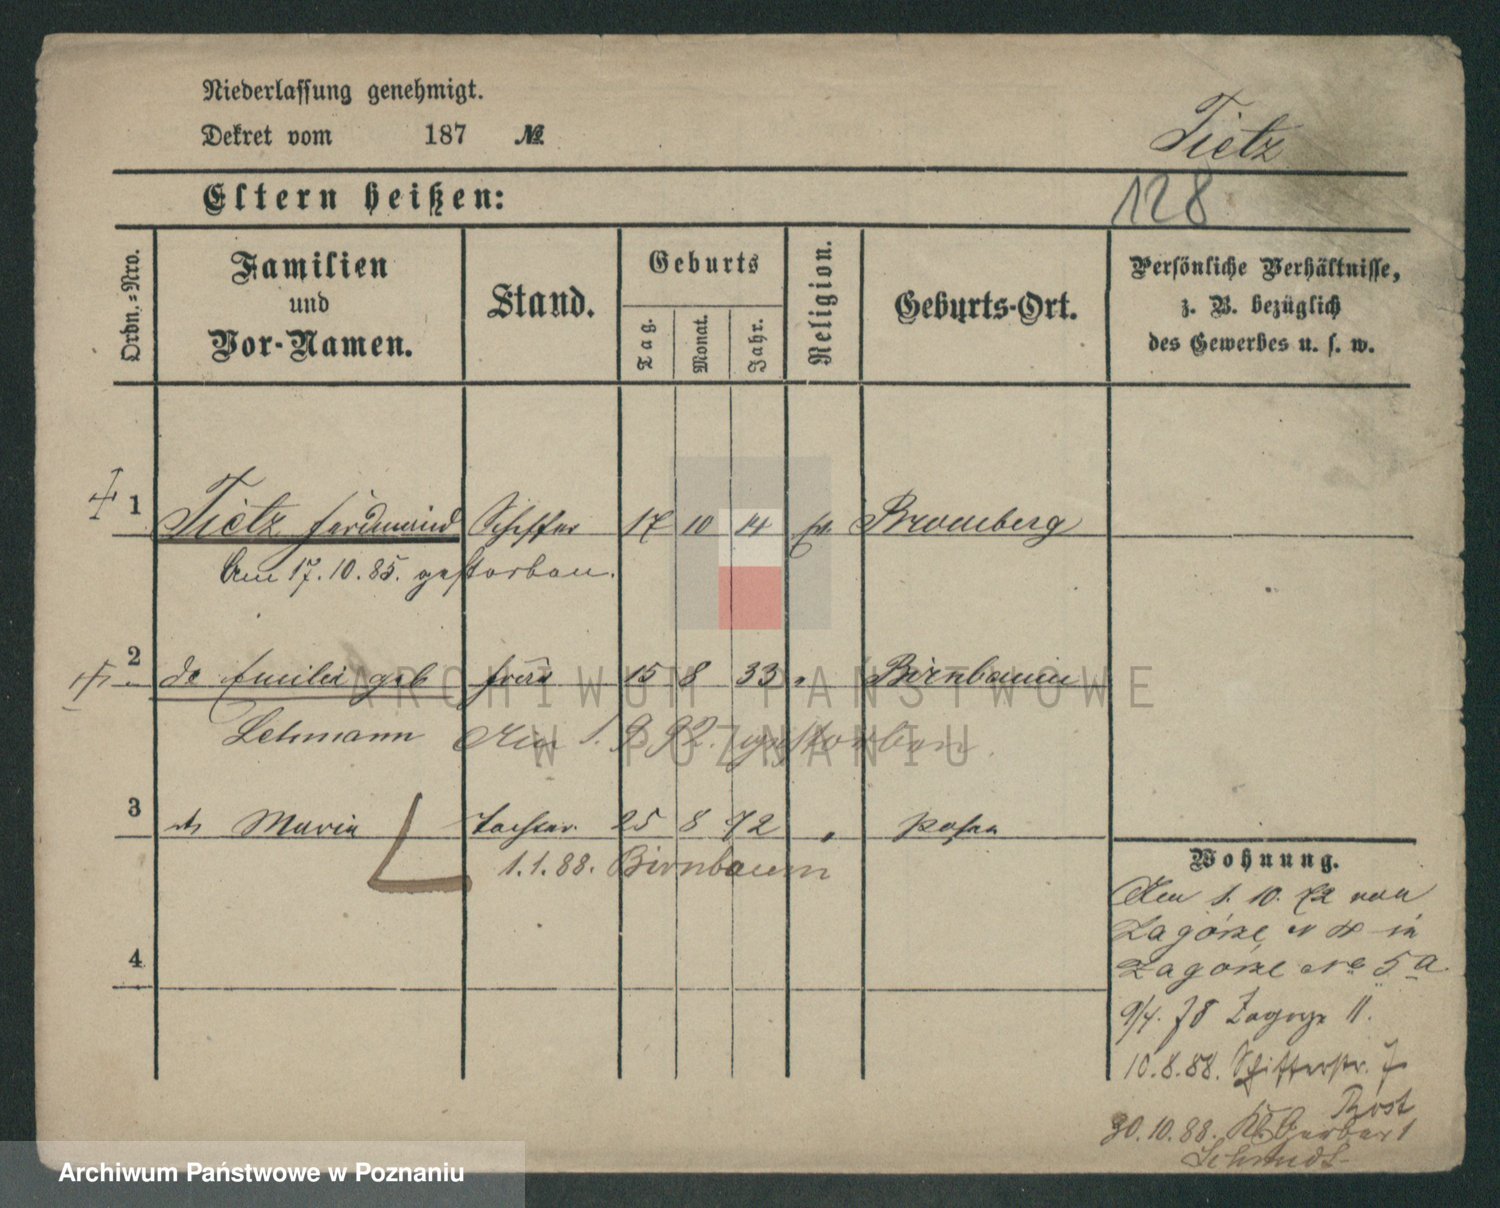 Niederlassung genehmigt.
Dekret vom 187 №
Tietz
Eltern heißen:
128
Ordn.-Nro.
Familien
und
Vor-Namen.
Stand.
Geburts
Tag.
Monat.
Jahr.
Religion.
Geburts-Ort.
Persönliche Verhältnisse,
z. B. bezüglich
des Gewerbes u. s. w.
1 Tietz Ferdinand Schiffer 17 10 14 ev Bromberg
Am 17.10.85. gestorben.
2 do Emilie geb Frau 15 8 33 " Birnbaum
Lehmann Am 1. 9 92. gestorben.
3 do Maria Tochter 25 8 72 " Posen
1.1.88. Birnbaum
4
Wohnung.
Am 1. 10. 72 von
Zagórze in
Zagórze No 5a
9/4. 78 Zagorze 11.
10.8.88. Schifferstr. 7
Rost
30.10.88. Kl. Gerberst
Schmidt
ARCHIWUM PAŃSTWOWE
W POZNANIU
Archiwum Państwowe w Poznaniu